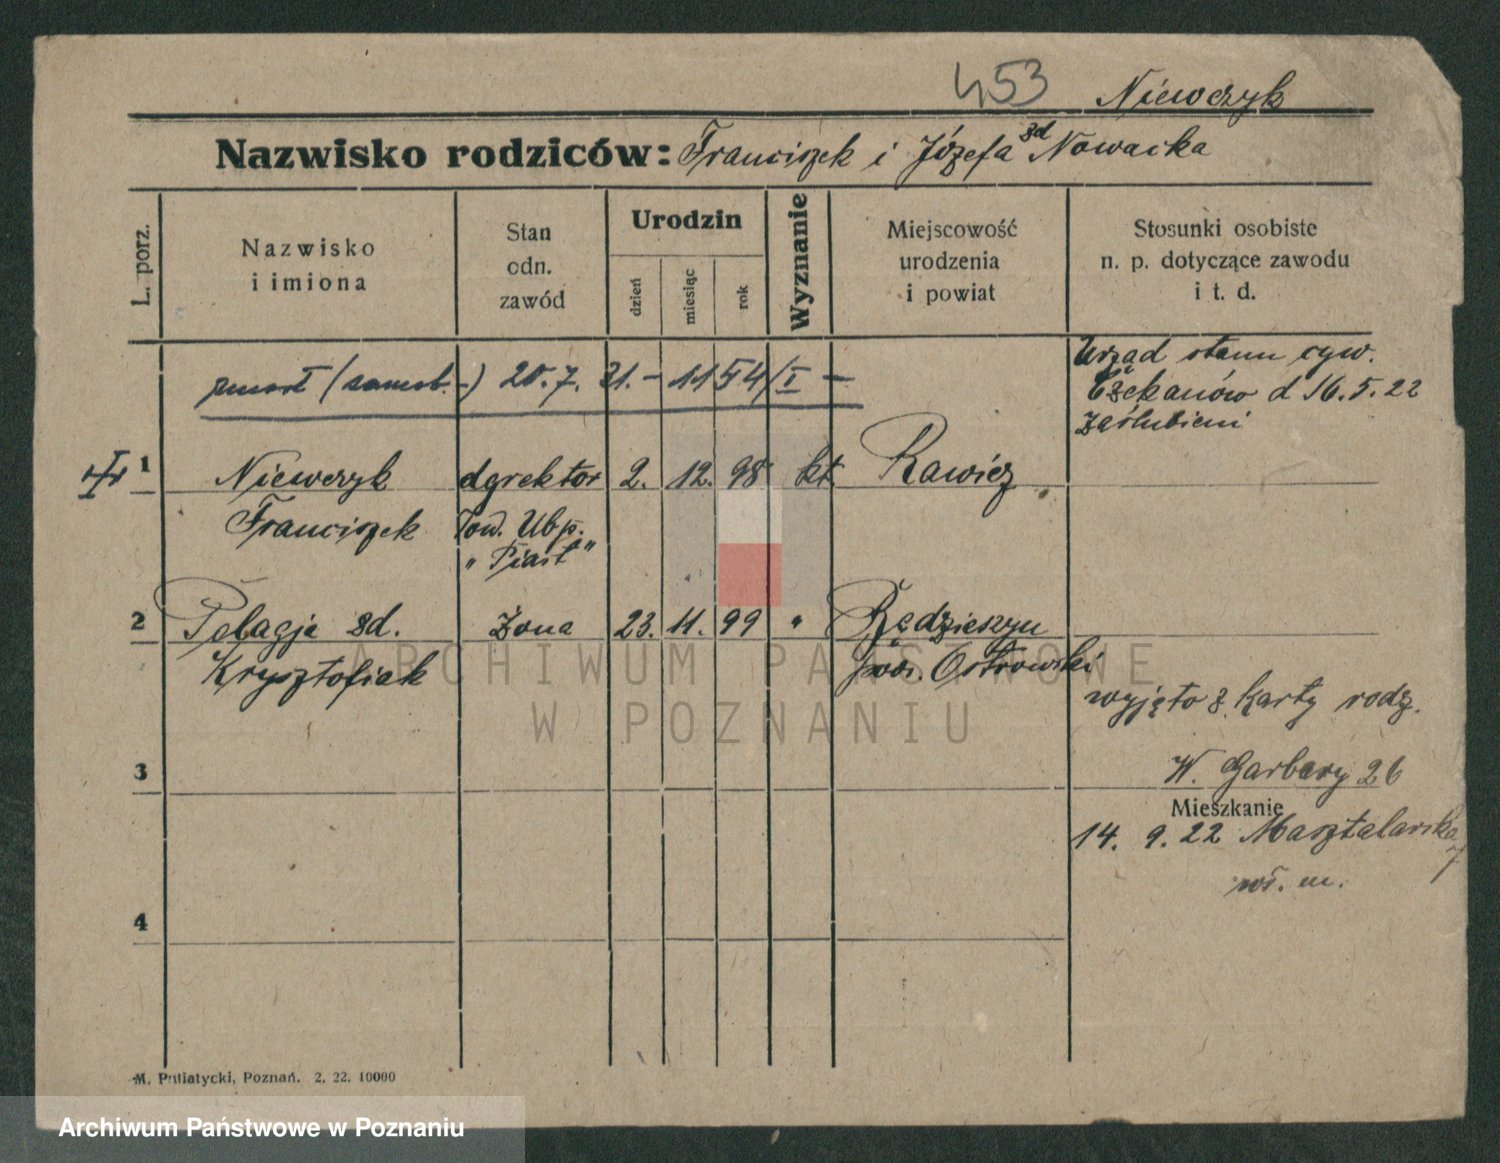 453 Niewczyk
Nazwisko rodziców: Franciszek i Józefa zd Nowacka
L. porz.
Nazwisko
i imiona
Stan
odn.
zawód
Urodzin
dzień
miesiąc
rok
Wyznanie
Miejscowość
urodzenia
i powiat
Stosunki osobiste
n. p. dotyczące zawodu
i t. d.
zmarł (samob.-) 20. 7. 31. - 1154/I -
Urząd stanu cyw.
Czekanów d 16.5.22
zaślubieni
1 Niewczyk dyrektor 2. 12. 98 kt. Rawicz
Franciszek Tow. Ubp.
"Piast"
2 Pelagja zd. żona 23. 11. 99 " Będzieszyn
Krysztofiak pow. Ostrowski
wyjęto z karty rodz.
3 W. Garbary 26
Mieszkanie
14. 9. 22 Masztalarska
7
wł. m.
4
M. Putiatycki, Poznań. 2. 22. 10000
ARCHIWUM PAŃSTWOWE
W POZNANIU
Archiwum Państwowe w Poznaniu